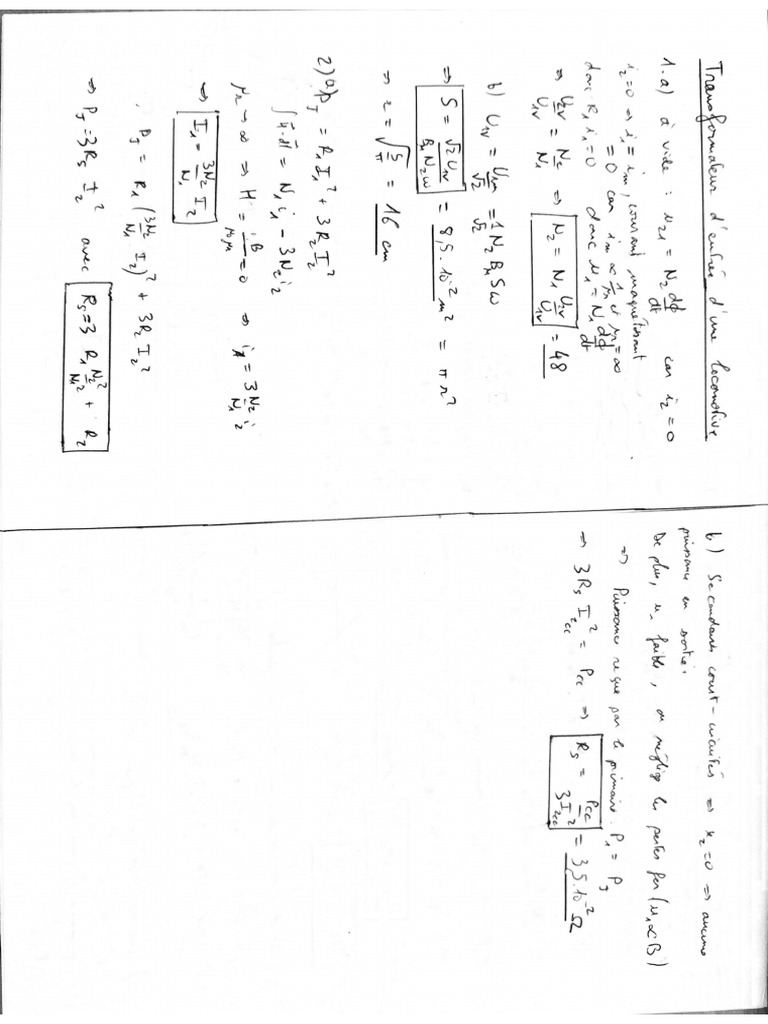 Transformateur d'entrée d'une locomotive
1.a) à vide : u21 = N2 dΦ/dt car i2=0
i2=0 ⇒ i1 = im, courant magnétisant
= 0 car im ∝ 1/μr et μr=∞
donc R1 i1=0 donc u1 = N1 dΦ/dt
⇒ U2V/U1V = N2/N1 ⇒ N2 = N1 U2V/U1V = 48
b) U1V = U1M/√2 = 1/√2 N2 BM S ω
⇒ S = √2 U1V/(BM N2 ω) = 8,5.10⁻² m² = π r²
⇒ r = √(S/π) = 16 cm
2) a) PJ = R1 I1² + 3 R2 I2²
∫H.dl = N1 i1 - 3N2 i2
μr → ∞ ⇒ H = B/(μ0 μr) = 0 ⇒ i1 = 3 N2/N1 i2
⇒ I1 = 3N2/N1 I2
PJ = R1 (3N2/N1 I2)² + 3R2 I2²
⇒ PJ = 3RS I2² avec RS = 3 R1 N2²/N1² + R2
b) Secondaires court-circuités ⇒ u2=0 ⇒ aucune
puissance en sortie.
De plus, u1 faible, on néglige les pertes fer (u1 ∝ B)
⇒ Puissance reçue par le primaire. P1 = PJ
⇒ 3 RS I2cc² = Pcc ⇒ RS = Pcc/(3I2cc²) = 3,5.10⁻² Ω